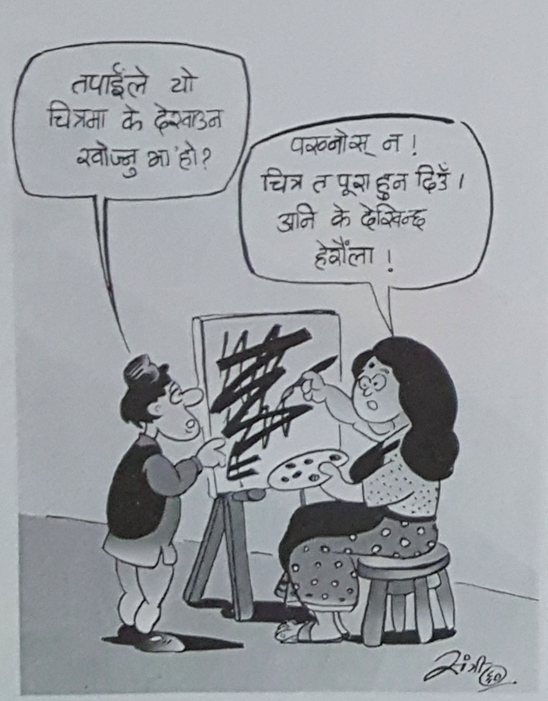 तपाईंले यो
चित्रमा के देखाउन
खोज्नु भा'हो?
पख्नोस् न!
चित्र त पूरा हुन दिउँ।
अनि के देखिन्छ
हेरौंला!